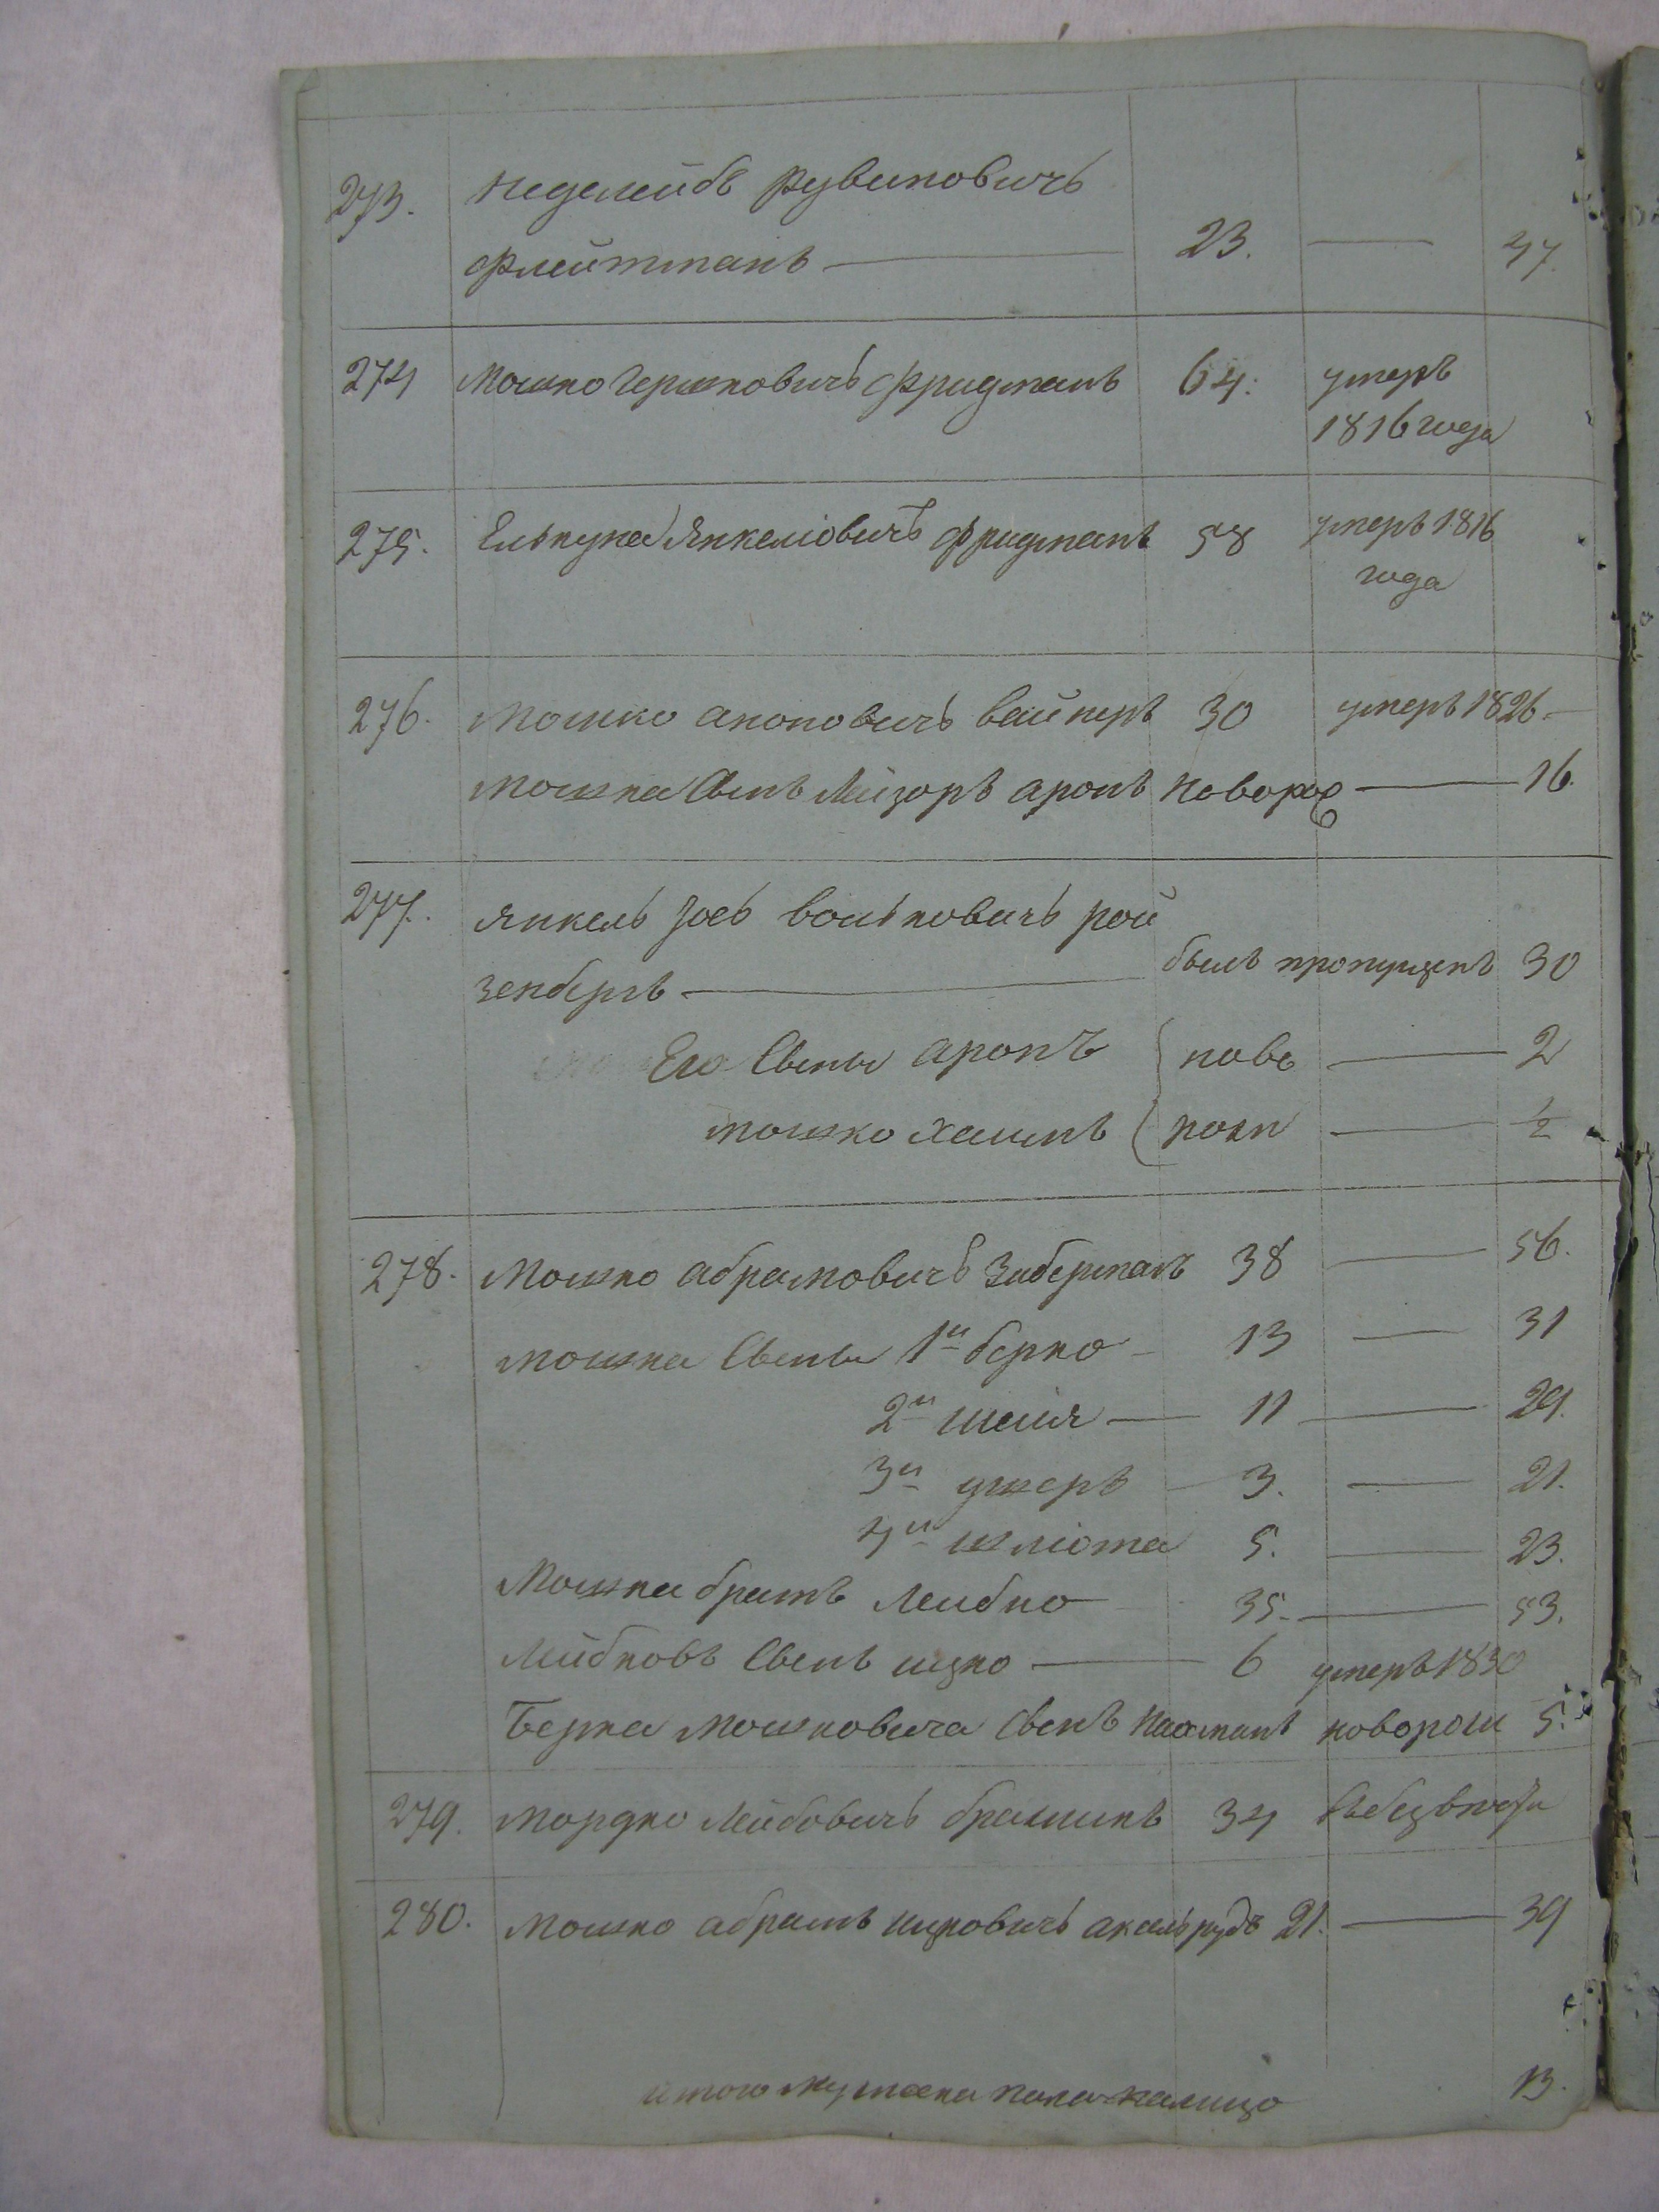 273. Неделейбъ Рувиновичъ
Флейтманъ — 23. — 41.
274 Мошко Гершковичъ Фридманъ 64: умеръ
1816 года
275. Елькуна Янкеліовичъ Фридманъ 58 умеръ 1816
года
276. Мошко ароновичъ вайнеръ 30 умеръ 1826 —
Мошка Сынъ Лейзоръ аронъ Новорож — 16.
277. Янкель Зоевъ вольковичъ рой
зенбергъ — былъ пропущенъ 30
Его Сыны аронъ новo — 2
мошко хаимъ рожд — 1/2
278. Мошко абрамовичъ Зиберманъ 38 — 56.
Мошка Сыны 1й берко — 13 — 31
2й шеия — 11 — 29.
3й ушеръ — 3. — 21.
4й шліома 5. — 23.
Мошка братъ Леибко 35. — 53.
Лейбковъ Сынъ ицко — 6 умеръ 1830
Берка Мошковича Сынъ Нахманъ новорож 5.
279. Мордко Лейбовичъ брашинъ 34
280. Мошко абрамъ ицковичъ аксельрудъ 21. — 39
итого мужеска пола налицо 13.